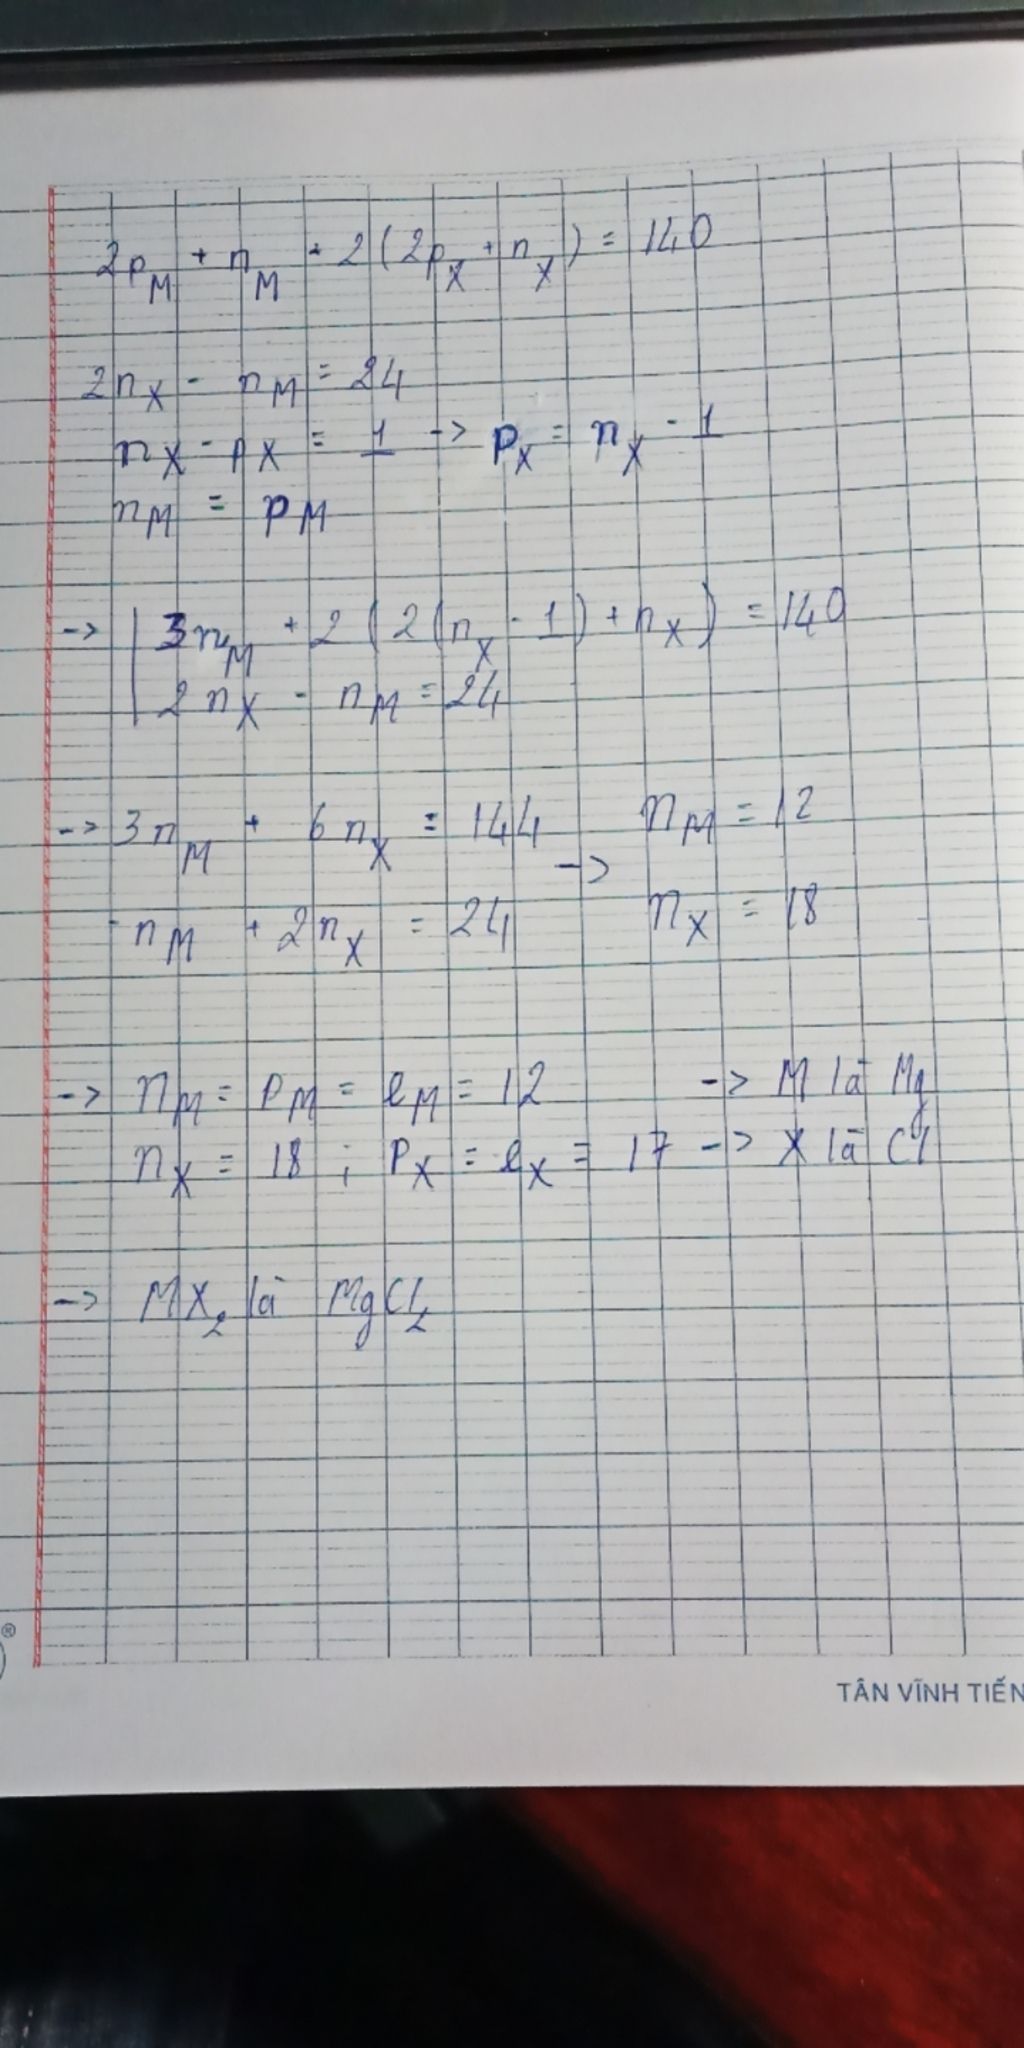 2p_M + n_M + 2(2p_X + n_X) = 140
2n_X - n_M = 24
n_X - p_X = 1 -> p_X = n_X - 1
n_M = p_M
-> | 3n_M + 2(2(n_X - 1) + n_X) = 140
2n_X - n_M = 24
-> 3n_M + 6n_X = 144 -> n_M = 12
-n_M + 2n_X = 24 n_X = 18
-> n_M = p_M = e_M = 12 -> M là Mg
n_X = 18 ; p_X = e_X = 17 -> X là Cl
-> MX₂ là MgCl₂
®
TÂN VĨNH TIẾN